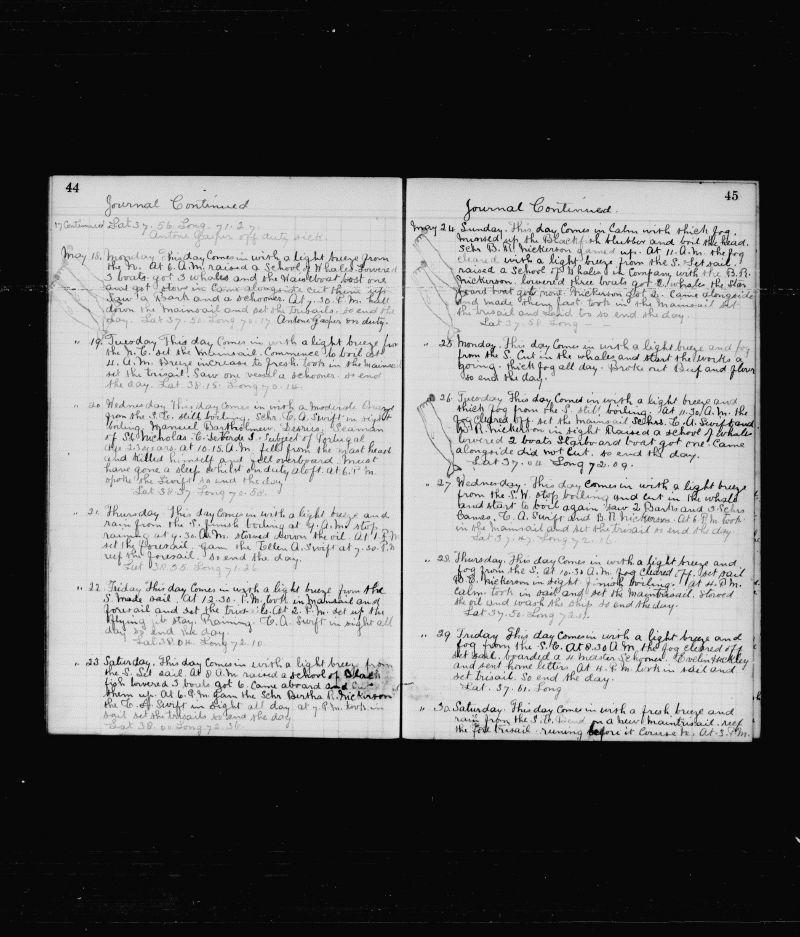 44
Journal Continued
17 Continued Lat 37. 56 Long. 71. 27.
Antone Gaspar off duty sick.
May 18. Monday This day Comes in with a light breeze from
the N. At 6. A.M. raised a School of Whales. Lowered
3 boats got 3 whales and the Waistboat lost one
and got stove in Came alongside cut them up
Saw a Bark and a schooner. At 7.30. P.M. hall
down the Mainsail and set the trisails. so end the
day. Lat 37. 50. Long 70. 17 Antone Gaspar on duty.
" 19. Tuesday This day Comes in with a light breeze from
the N.E. set the Mainsail. Commence to boil at
4. A.M. Breeze increase to fresh took in the mainsail
set the trisail. Saw one vessel a schooner. so end
the day. Lat 38.15. Long 70.14.
" 20. Wednesday This day Comes in with a moderate Breeze
from the S.E. still boiling. Schr. E. A. Swift in sight
boiling. Manuel Bartholmew. Seaman
of St Nicholas C. Verde I. Subject of Portugal
Age 23 years. at 10.15. A.M. fell from the mast head
and killed himself and fell overboard. Must
have gone a sleep while on duty aloft. At 6. P.M.
spoke the Swift so end the day
Lat 38.37. Long 70.50.
" 21. Thursday. This day Comes in with a light breeze and
rain from the S. finish boiling at 9. A.M. stop
raining at 9.30. A.M. stowed down the oil. At 1. P.M.
set the Foresail. Gam the Ellen A. Swift at 7.30. P.M.
reef the foresail. so end the day.
Lat 38.35. Long 71.26
" 22. Friday This day Comes in with a light breeze from the
S. made sail. At 12.30. P.M. took in mainsail and
foresail and set the trisails. At 2. P.M. set up the
flying jib stay. Raining. E. A. Swift in sight all
day so end the day.
Lat 38.04. Long 72.10
" 23. Saturday. This day Comes in with a light breeze from
the S. Set sail. At 8 A.M. raised a school of Black
fish lowered 3 boats got 6. Came aboard and cut
them up. At 6. P.M. Gam the Schr Bertha R. Nickerson
the E. A. Swift in sight all day at 7. P.M. took in
sail set the trisails so end the day
Lat 38.00 Long 72.36.
45
Journal Continued.
May 24. Sunday. This day Comes in Calm with thick fog.
minced up the Blackfish blubber and boil the head.
Schr B. R. Nickerson gamed up. At 11. A.M. the fog
cleared with a light breeze from the S. Set sail.
raised a School of Whales in Company with the B. R.
Nickerson. lowered three boats got 2 whales the Star
board boat got one. Nickerson got 2. Came alongside
and made them fast took in the Mainsail set
the trisail and laid to so end the day.
Lat 37.58. Long —
" 25. Monday. This day Comes in with a light breeze and fog
from the S. Cut in the whales and start the works a
going. thick fog all day. Broke out Beef and flour
so end the day.
" 26. Tuesday This day Comes in with a light breeze and
thick fog from the S. still boiling. At 11.30. A.M. the
fog cleared off. set the mainsail Schrs. E. A. Swift and
B. R. Nickerson in sight Raised a school of whales
lowered 2 boats Starboard boat got one. Came
alongside did not Cut. so end the day.
Lat 37.04 Long 72.09.
" 27. Wednesday. This day comes in with a light breeze
from the S.W. stop boiling and cut in the whale
and start to boil again saw 2 Barks and 3 Schrs
E. A. Swift and B. R. Nickerson. At 6. P.M. took
in the mainsail and set the trisail so end the day
Lat 37.47. Long 72.16
" 28. Thursday. This day Comes in with a light breeze and
fog from the S. at 10.30 A.M. fog cleared off. set sail
B. R. Nickerson in sight. finish boiling. At 4. P.M.
Calm. took in sail and set the maintrisail. Stowed
the oil and wash the ship so end the day.
Lat 37.50. Long 72.
" 29. Friday This day Comes in with a light breeze and
fog from the S.E. At 8.30 A.M. the fog cleared off
set sail. boarded a 4 Master Schooner.
and sent home letters. At 4. P.M. took in sail and
set trisail. so end the day.
Lat. 37. 61. Long
" 30. Saturday. This day Comes in with a fresh breeze and
rain from the S.E. bend on a new maintrisail. reef
the fore trisail. runing before it Course N. At 3. P.M.